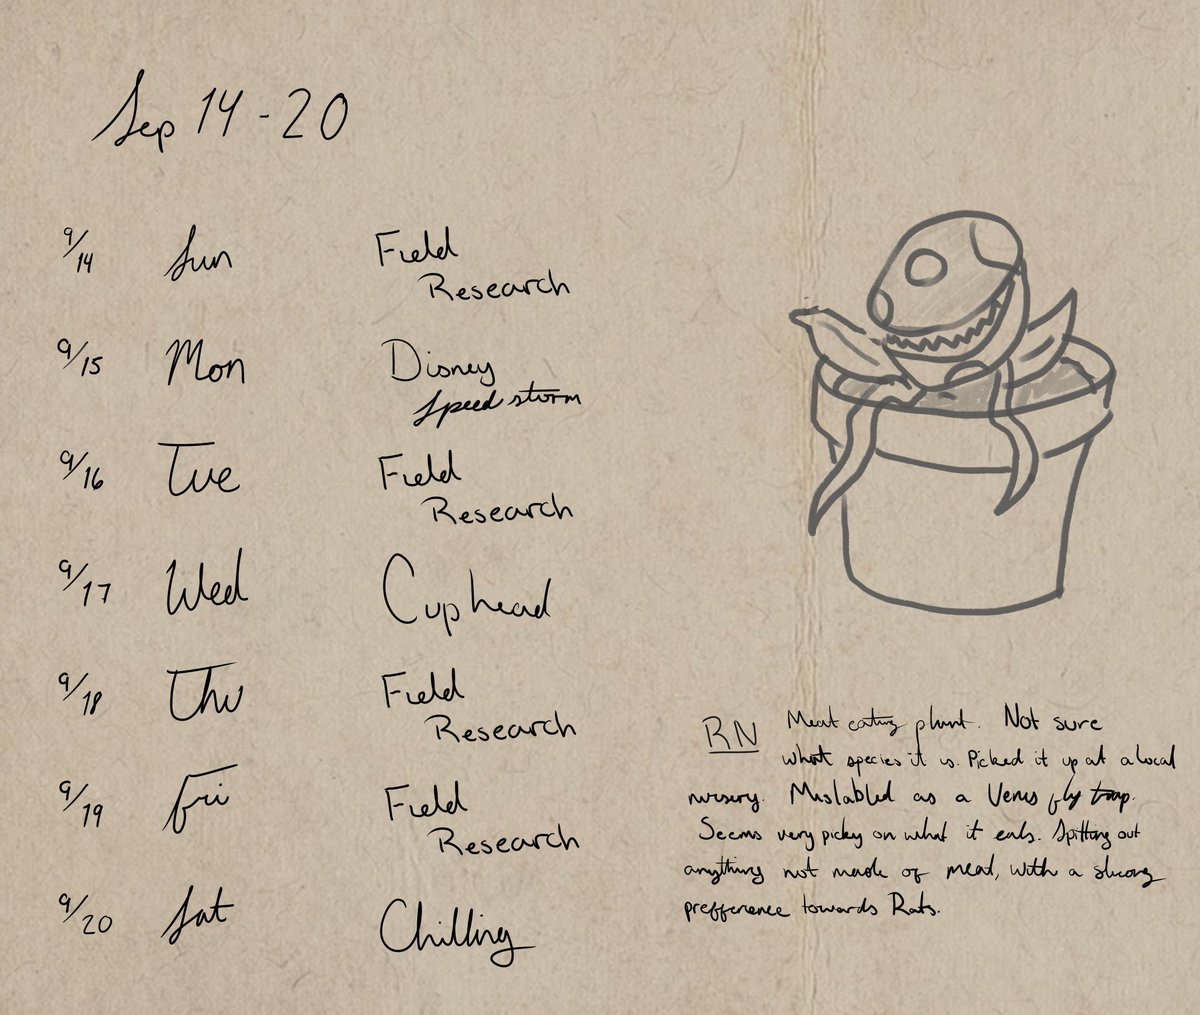 Sep 14-20
9/14 Sun Field
Research
9/15 Mon Disney
Speedstorm
9/16 Tue Field
Research
9/17 Wed Cuphead
9/18 Thu Field
Research
9/19 Fri Field
Research
9/20 Sat Chilling
RN Meat eating plant. Not sure
what species it is. Picked it up at a local
nursery. Mislabled as a Venus fly trap.
Seems very picky on what it eats. Spitting out
anything not made of meat, with a strong
prefference towards Rats.